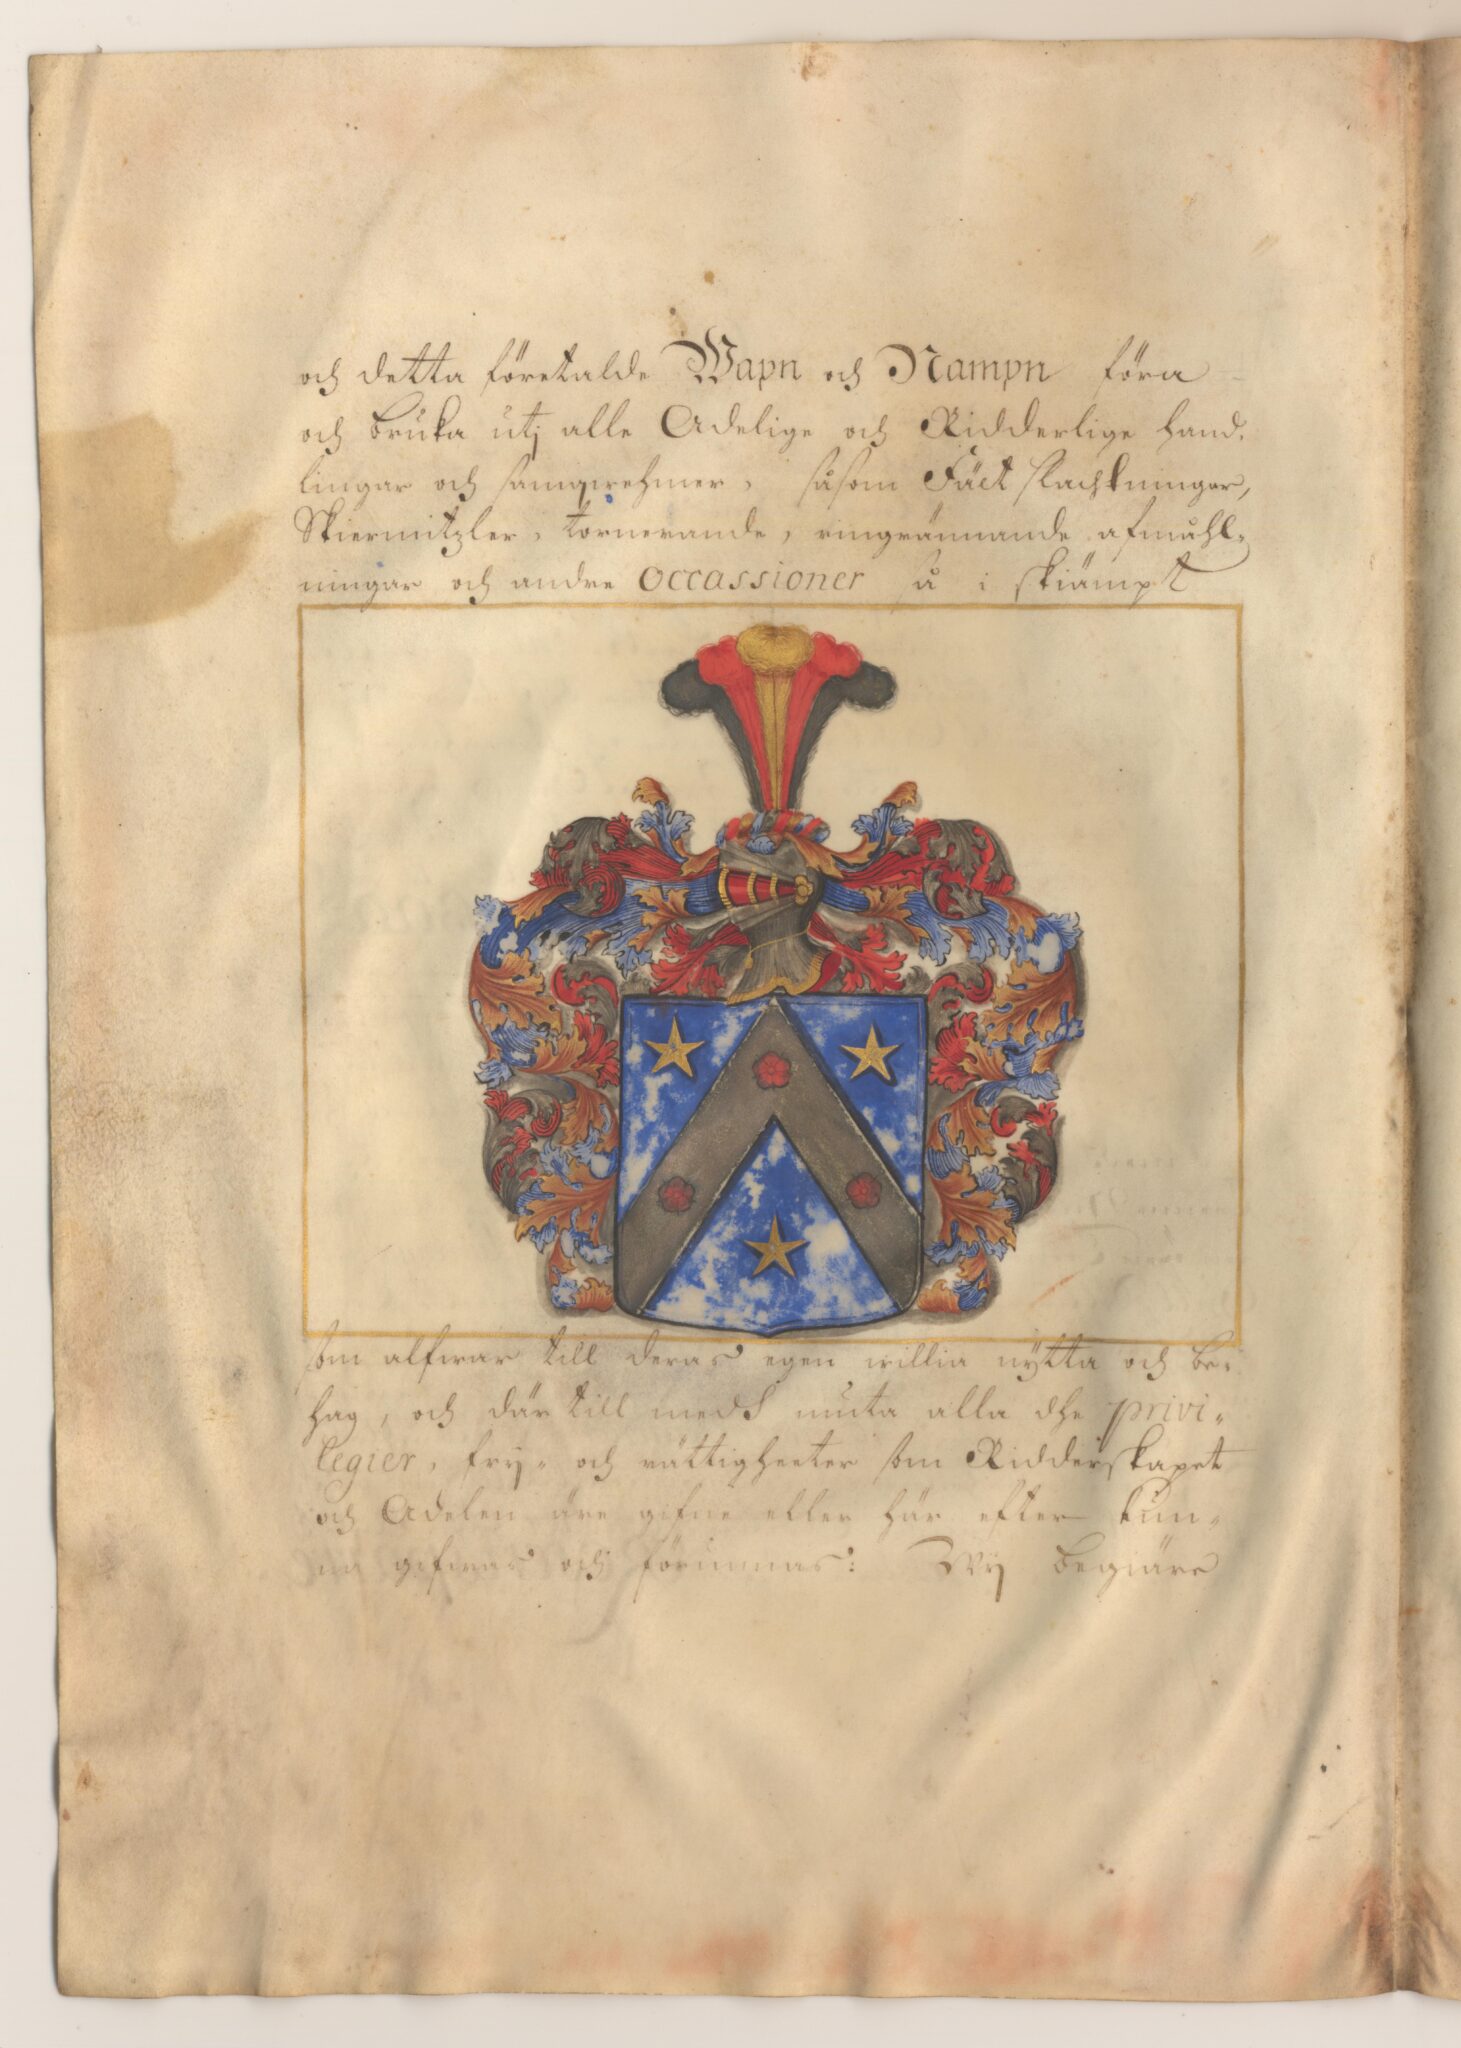 och detta företalde Wapn och Nampn föra
och bruka utj alle Adelige och Ridderlige hand,
lingar och samqwehmer, såsom Fäct slachtningar,
Skiermitzler, tornerande, ringrännande afmåhl,
ningar och andre Occassioner så i skiämpt
som alfwar till deras egen willia nÿtta och be,
hag, och där till medh niuta alla dhe privi,
legier, frÿ, och rättigheeter som Ridderskapet
och Adelen äre gifne eller här efter kun,
na gifwas och förunnas: Wij begiäre